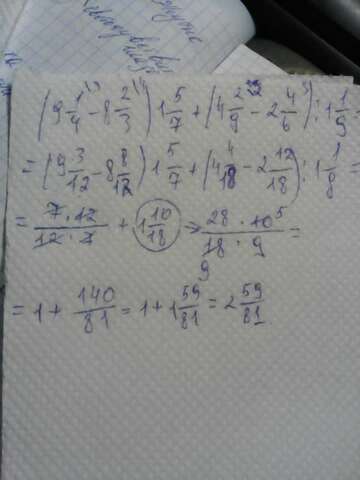 (9 1/4 - 8 2/3) 1 5/7 + (4 2/9 - 2 4/6) : 1 1/9 =
= (9 3/12 - 8 8/12) 1 5/7 + (4 4/18 - 2 12/18) : 1 1/8 =
= 7 · 12 / 12 · 7 + 1 10/18 → 28 · 10 5 / 18 · 9 =
9
= 1 + 140/81 = 1 + 1 59/81 = 2 59/81